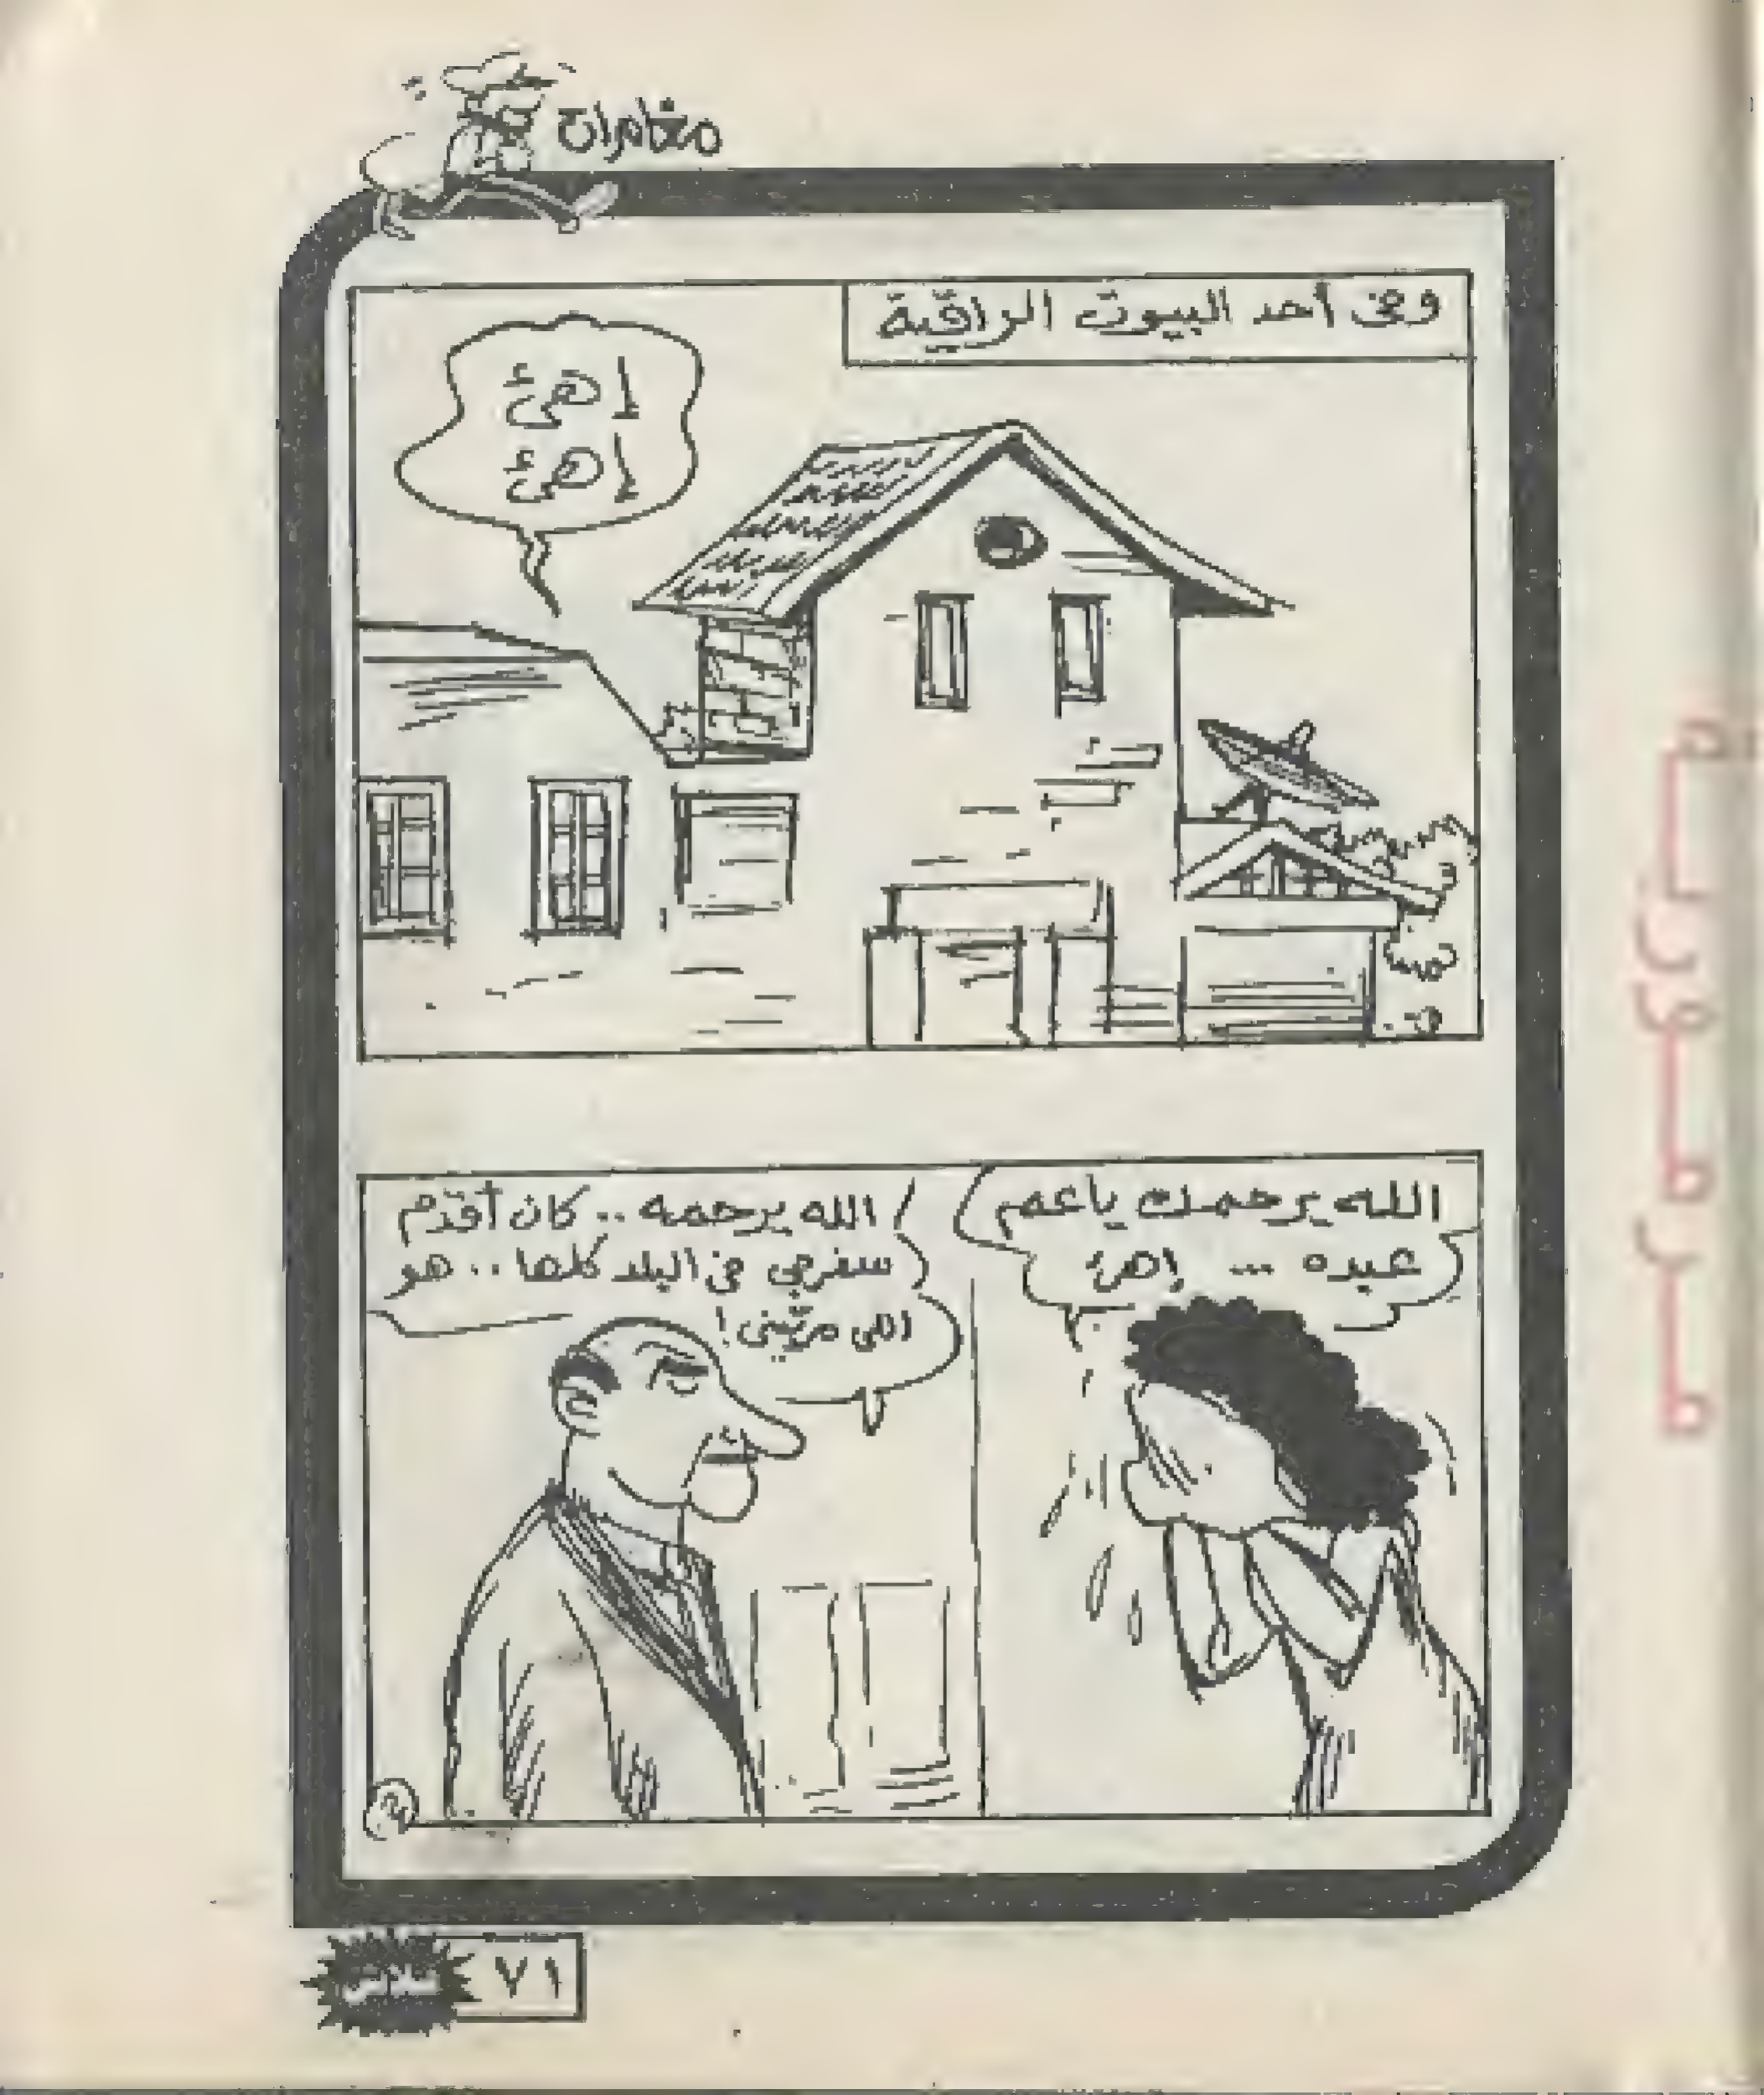 مغامرات
وفى أحد البيوت الراقية
إهئ
إهئ
الله يرحمك ياعم
عبده ... إهئ
الله يرحمه .. كان أقدم
سفرجي فى البلد كلها .. هو
اللى مربّينى!
٢
فلاش
٧١